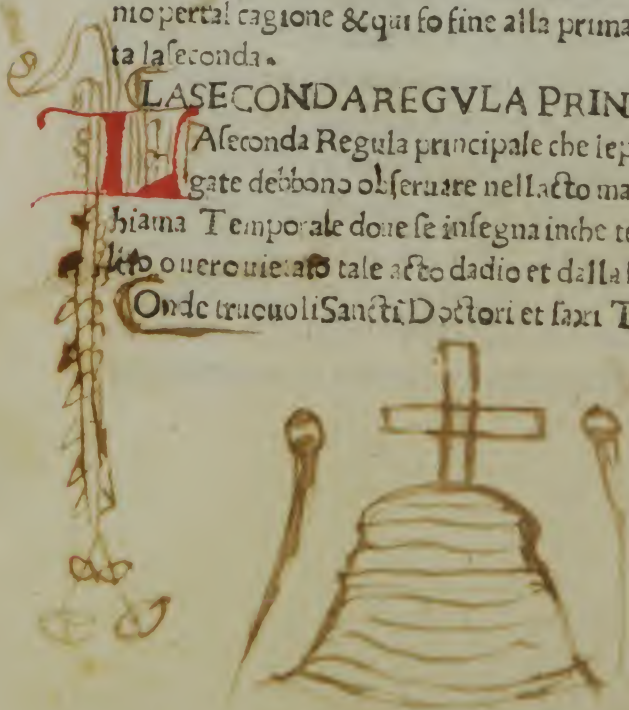 nio pertal cagione & qui fo fine alla prima
ta laseconda.
LASECONDAREGVLA PRIN
LAſeconda Regula principale che le
gate debbono obſeruare nellacto ma
hiama Temporale doue ſe inſegna inche te
lito ouero uietato tale acto dadio et dalla
Onde truouo li Sancti Doctori et ſacri T